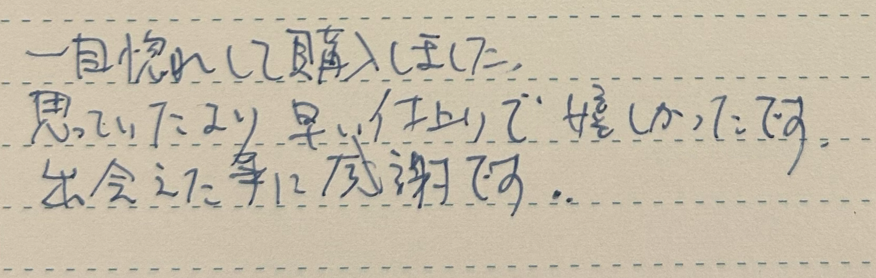 一目惚れして購入しました。
思っていたより早い仕上りで嬉しかったです。
出会えた事に感謝です..